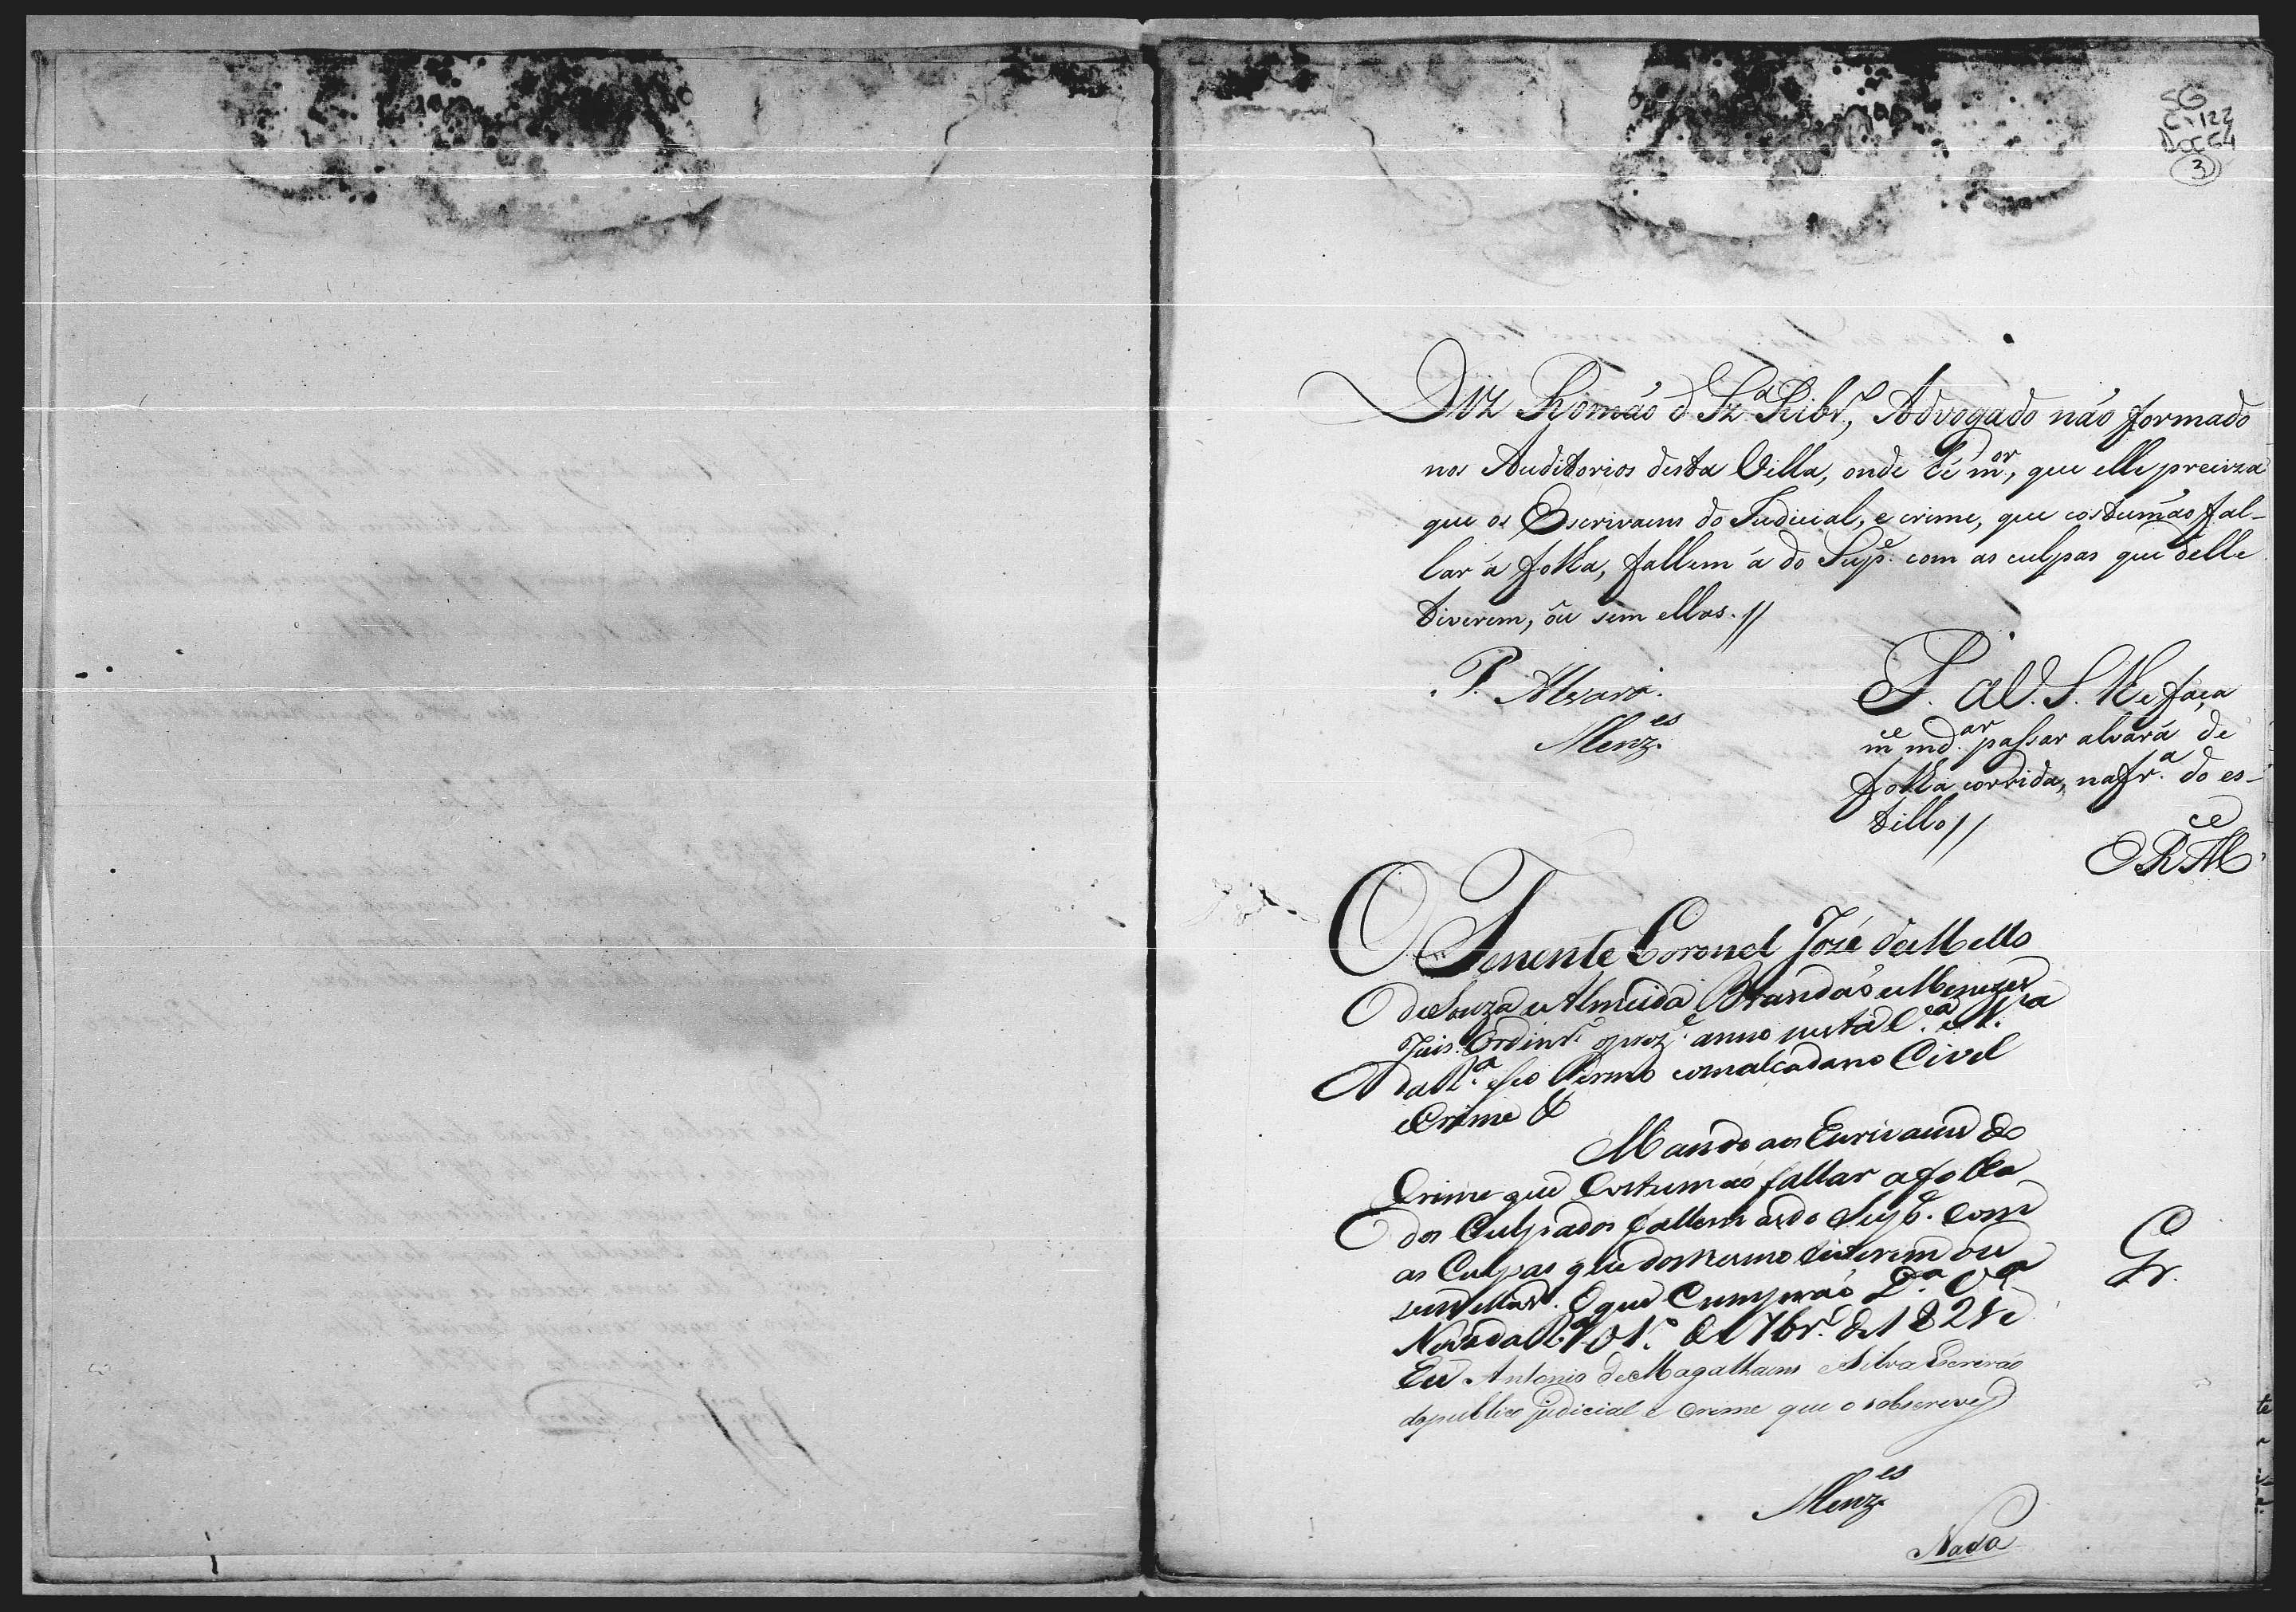 SG
Cx 122
Doc 54
3
Diz Romão d Sza Ribro, Advogado não formado
nos Auditorios desta Villa, onde hé mor, que elle preciza
que os Escrivaens do Judicial, e crime, que costumão fal-
lar á folha, fallem á do Supe. com as culpas que delle
tiverem, ou sem ellas. //
P. Alvará.
Menzes
P. a V. S. lhe faça
mce mdar passar alvará de
folha corrida, na fra. do es-
tillo //
E R Mce
O Tenente Coronel José de Mello
de Souza e Almeida Brandão e Menezes
Juis Ordinro o prez.e anno nesta
da Ra. e seo termo com alcada no Civel
e Crime &
Mando aos Escrivaens do
Crime que Custumão fallar a folha
dos Culpados fallem as do Supe. com
as Culpas que do mesmo tiverem ou
sem ellas. O que Cumprão Da. Va
Nova da Ra. o 1.o de 7bro. de 1821 e
Eu Antonio de Magalhaens e Silva Escrivão
do publico judicial e crime que o sobscrevy
Gr.
Menzes
Nada